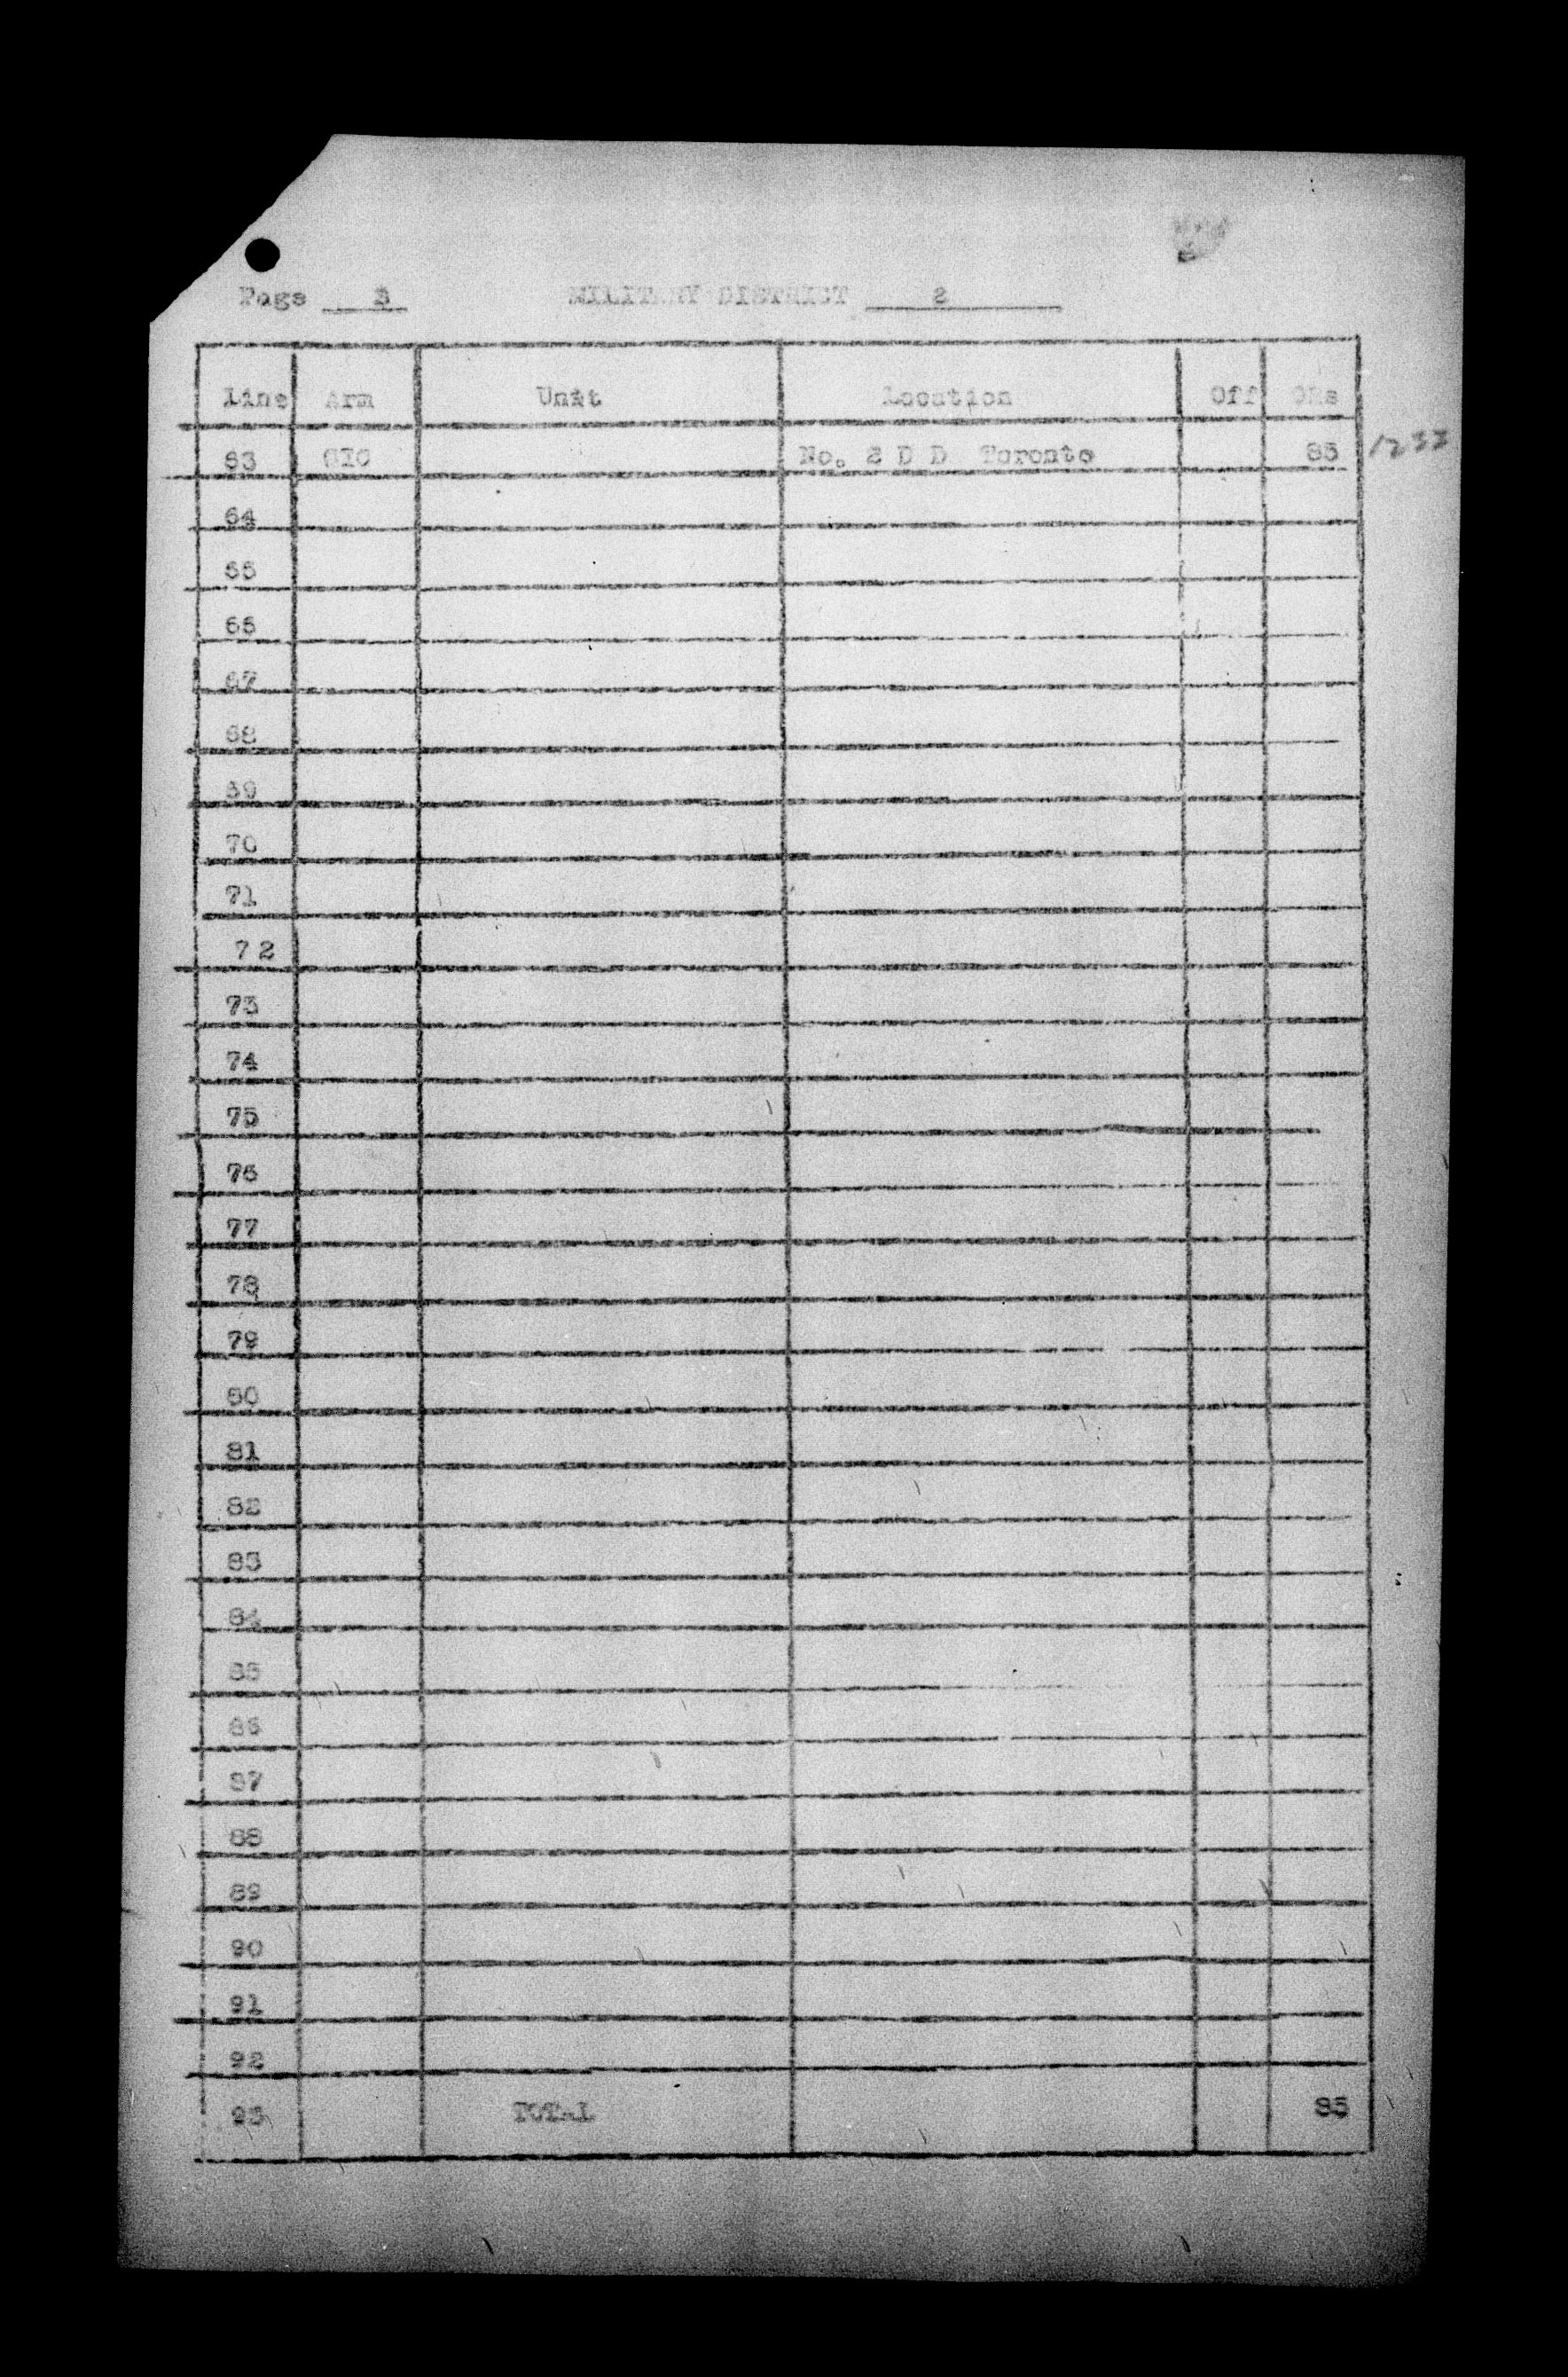 Page 3 MILITARY DISTRICT 2
Line Arm Unit Location Off ORs
63 CIC No. 2 D D Toronto 85
64
65
66
67
68
69
70
71
72
73
74
75
76
77
78
79
80
81
82
83
84
85
86
87
88
89
90
91
92
93 TOTAL 85